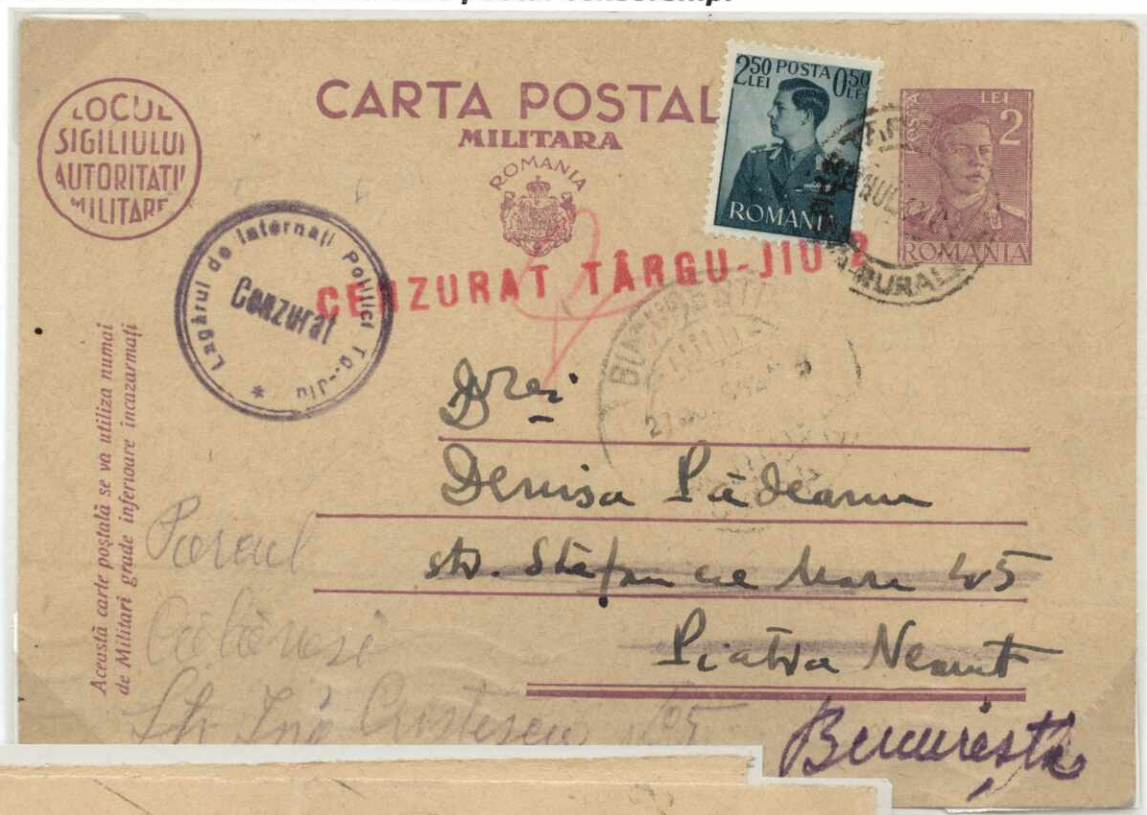 postal censorship.
LOCUL
SIGILIULUI
AUTORITATII
MILITARE
CARTA POSTAL
MILITARA
ROMANIA
2 50 LEI POSTA 0 50 LEI
ROMANIA
POSTA LEI 2
ROMANIA
Lagărul de Internati Politici Tg.-Jiu *
Cenzurat
CENZURAT TÂRGU-JIU 2
BUCURESTI
27
Această carte poștală se va utiliza numai
de Militari grade inferioare incazarmați
D-rei
Denisa Pădeanu
str. Ștefan cel Mare 45
Piatra Neamț
București
Parcul
Str Ing Cristescu